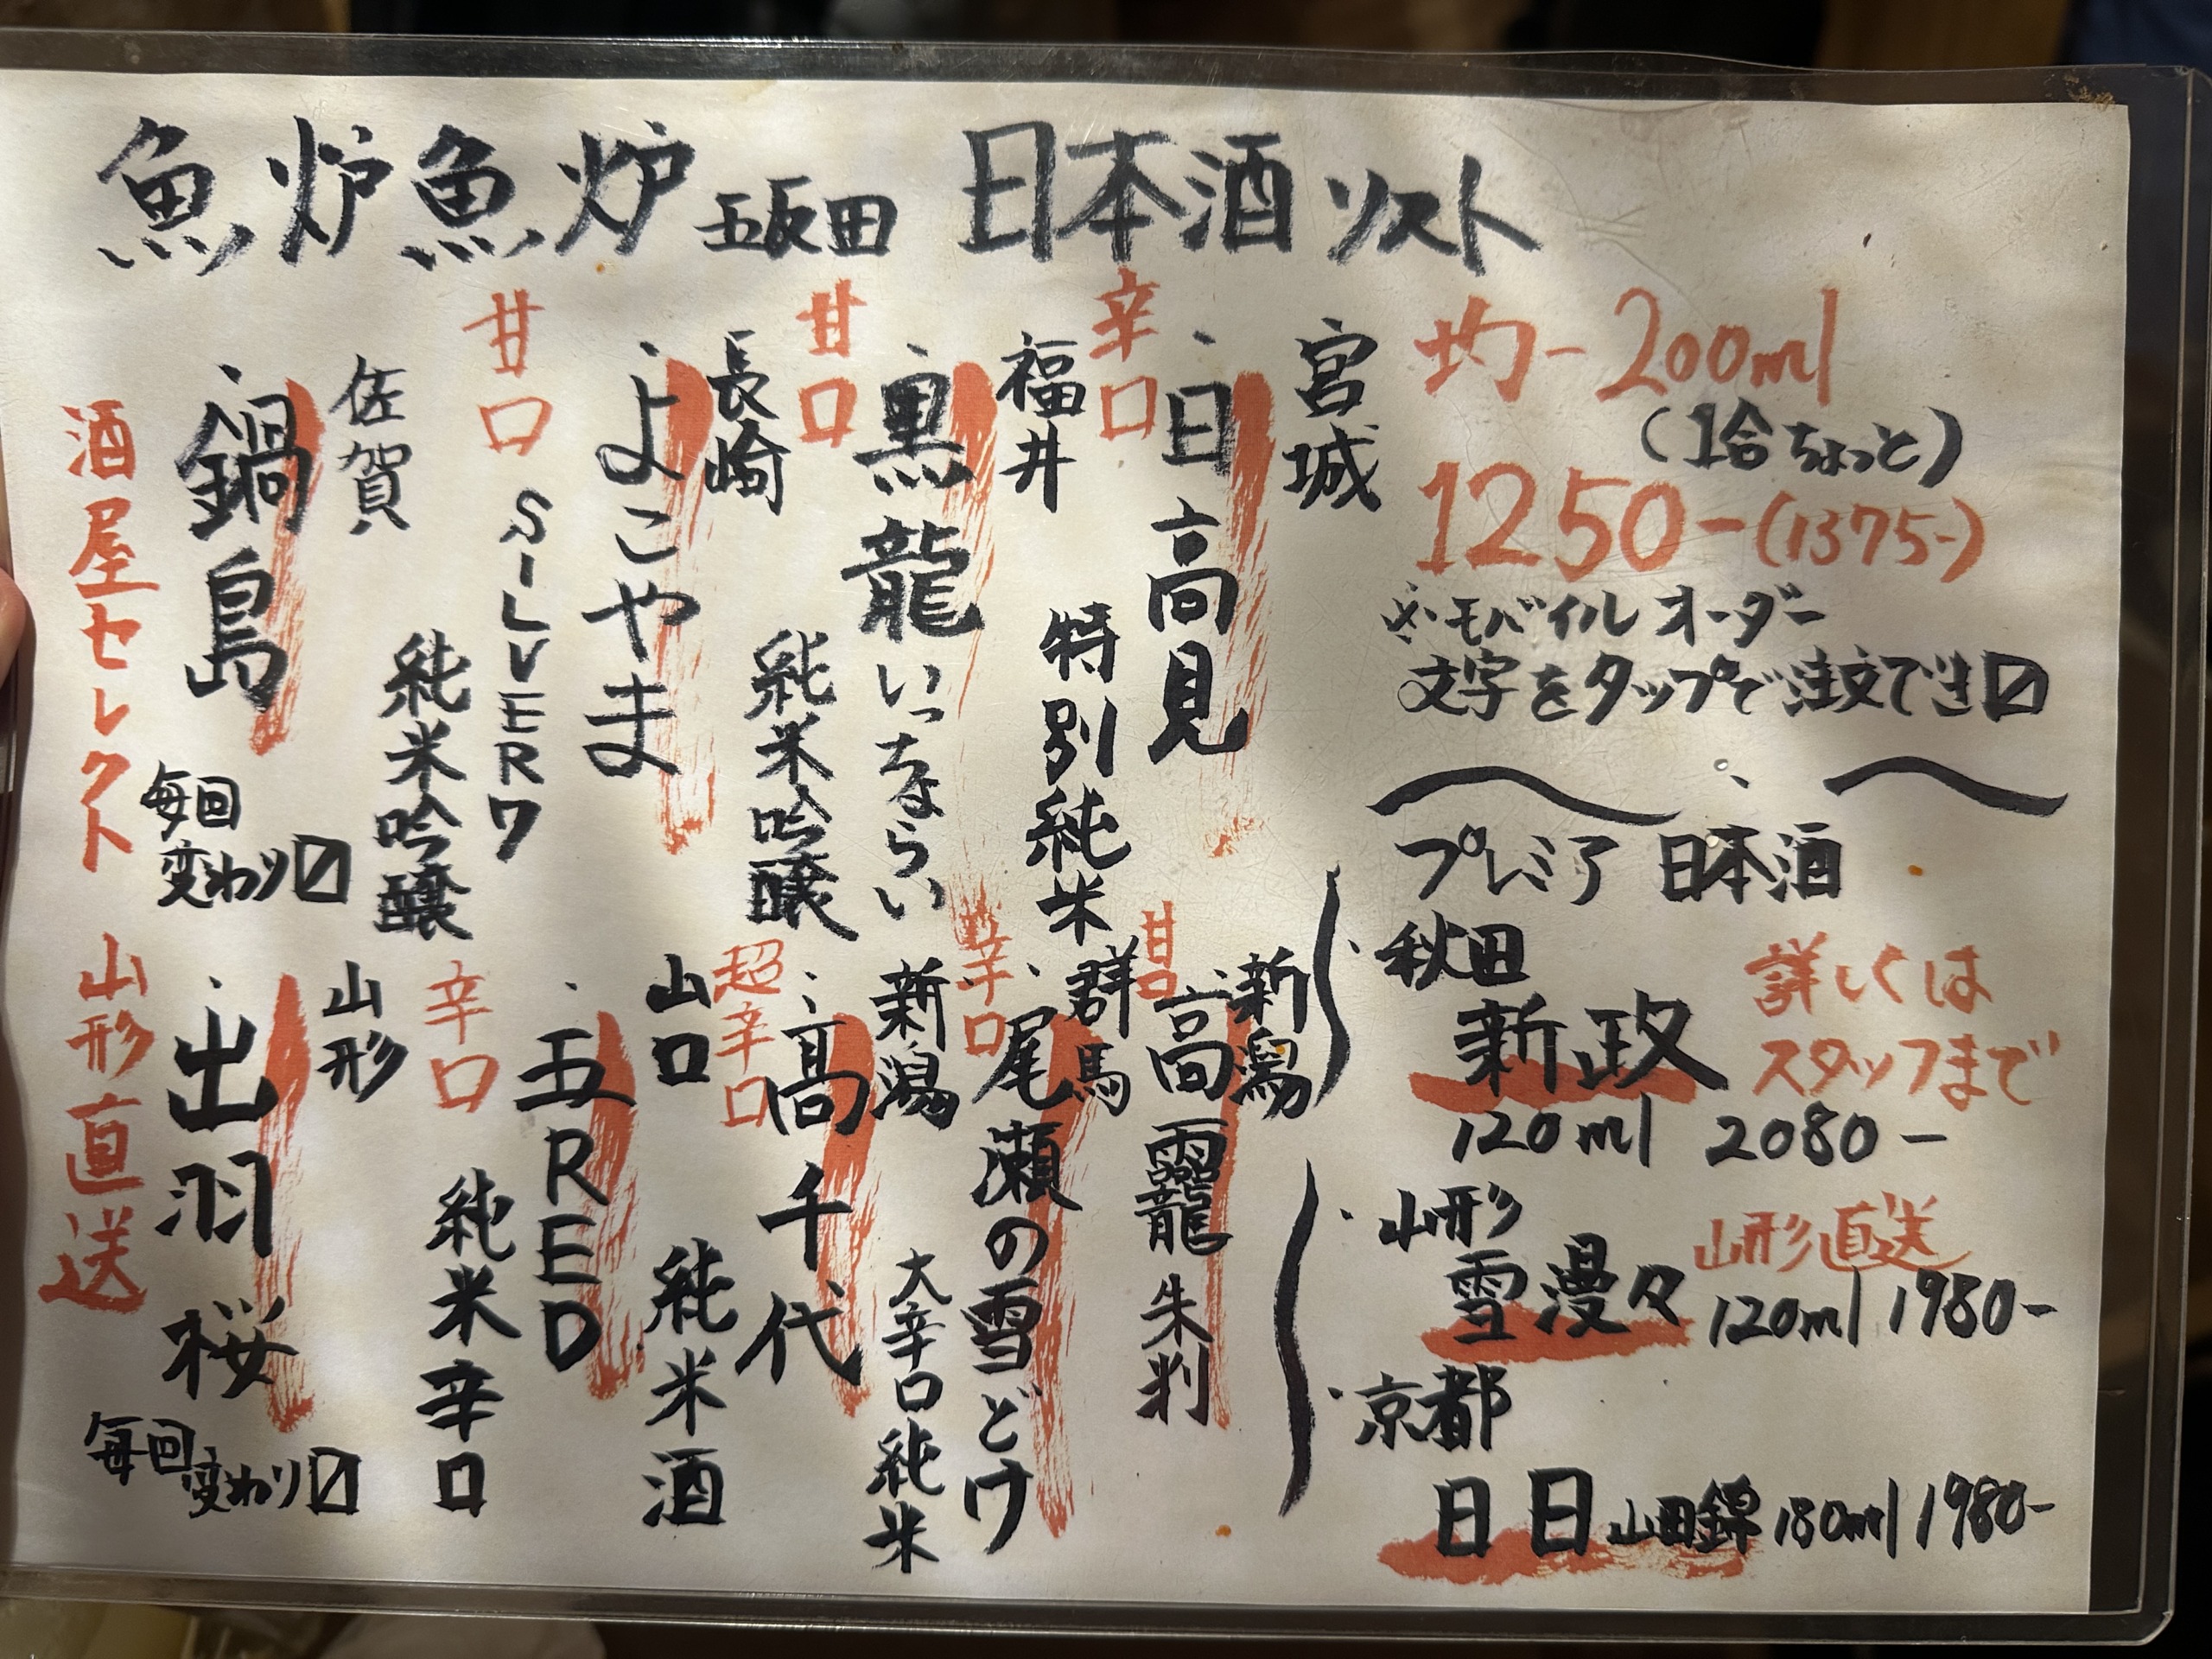 魚炉魚炉 五反田 日本酒リスト
均一200ml
(1合ちょっと)
1250-(1375-)
※モバイルオーダー
文字をタップで注文でき〼
プレミア日本酒
・秋田
新政
詳しくは
スタッフまで
120ml 2080-
・山形
山形直送
雪漫々 120ml 1980-
・京都
日日 山田錦 180ml 1980-
宮城
・日高見
辛口
特別純米
福井
・黒龍 いっちょらい
甘口
純米吟醸
長崎
・よこやま
SILVER7
甘口
純米吟醸
佐賀
・鍋島
毎回
変わり〼
酒屋セレクト
新潟
・高龗 朱判
甘口
群馬
・尾瀬の雪どけ
辛口
大辛口純米
新潟
・髙千代
超辛口
純米酒
山口
・五RED
辛口
純米辛口
山形
・出羽桜
毎回
変わり〼
山形直送